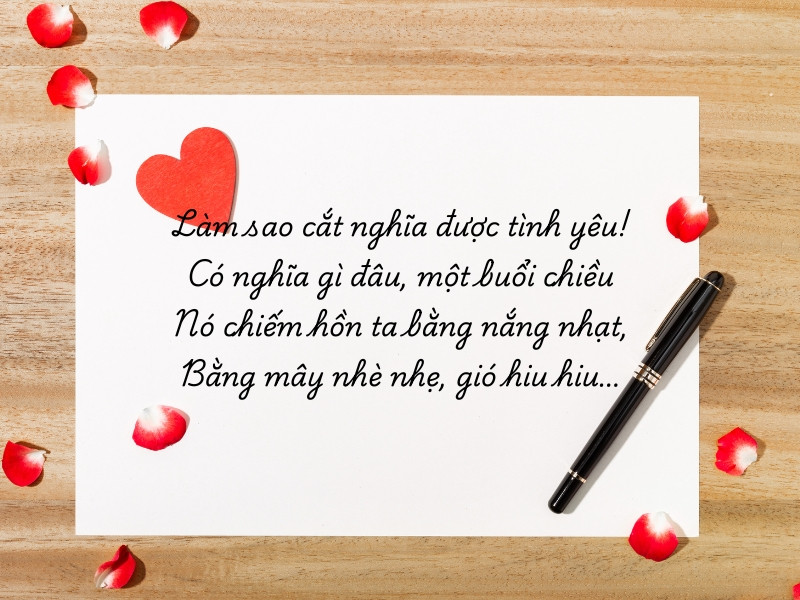 Làm sao cắt nghĩa được tình yêu!
Có nghĩa gì đâu, một buổi chiều
Nó chiếm hồn ta bằng nắng nhạt,
Bằng mây nhè nhẹ, gió hiu hiu...